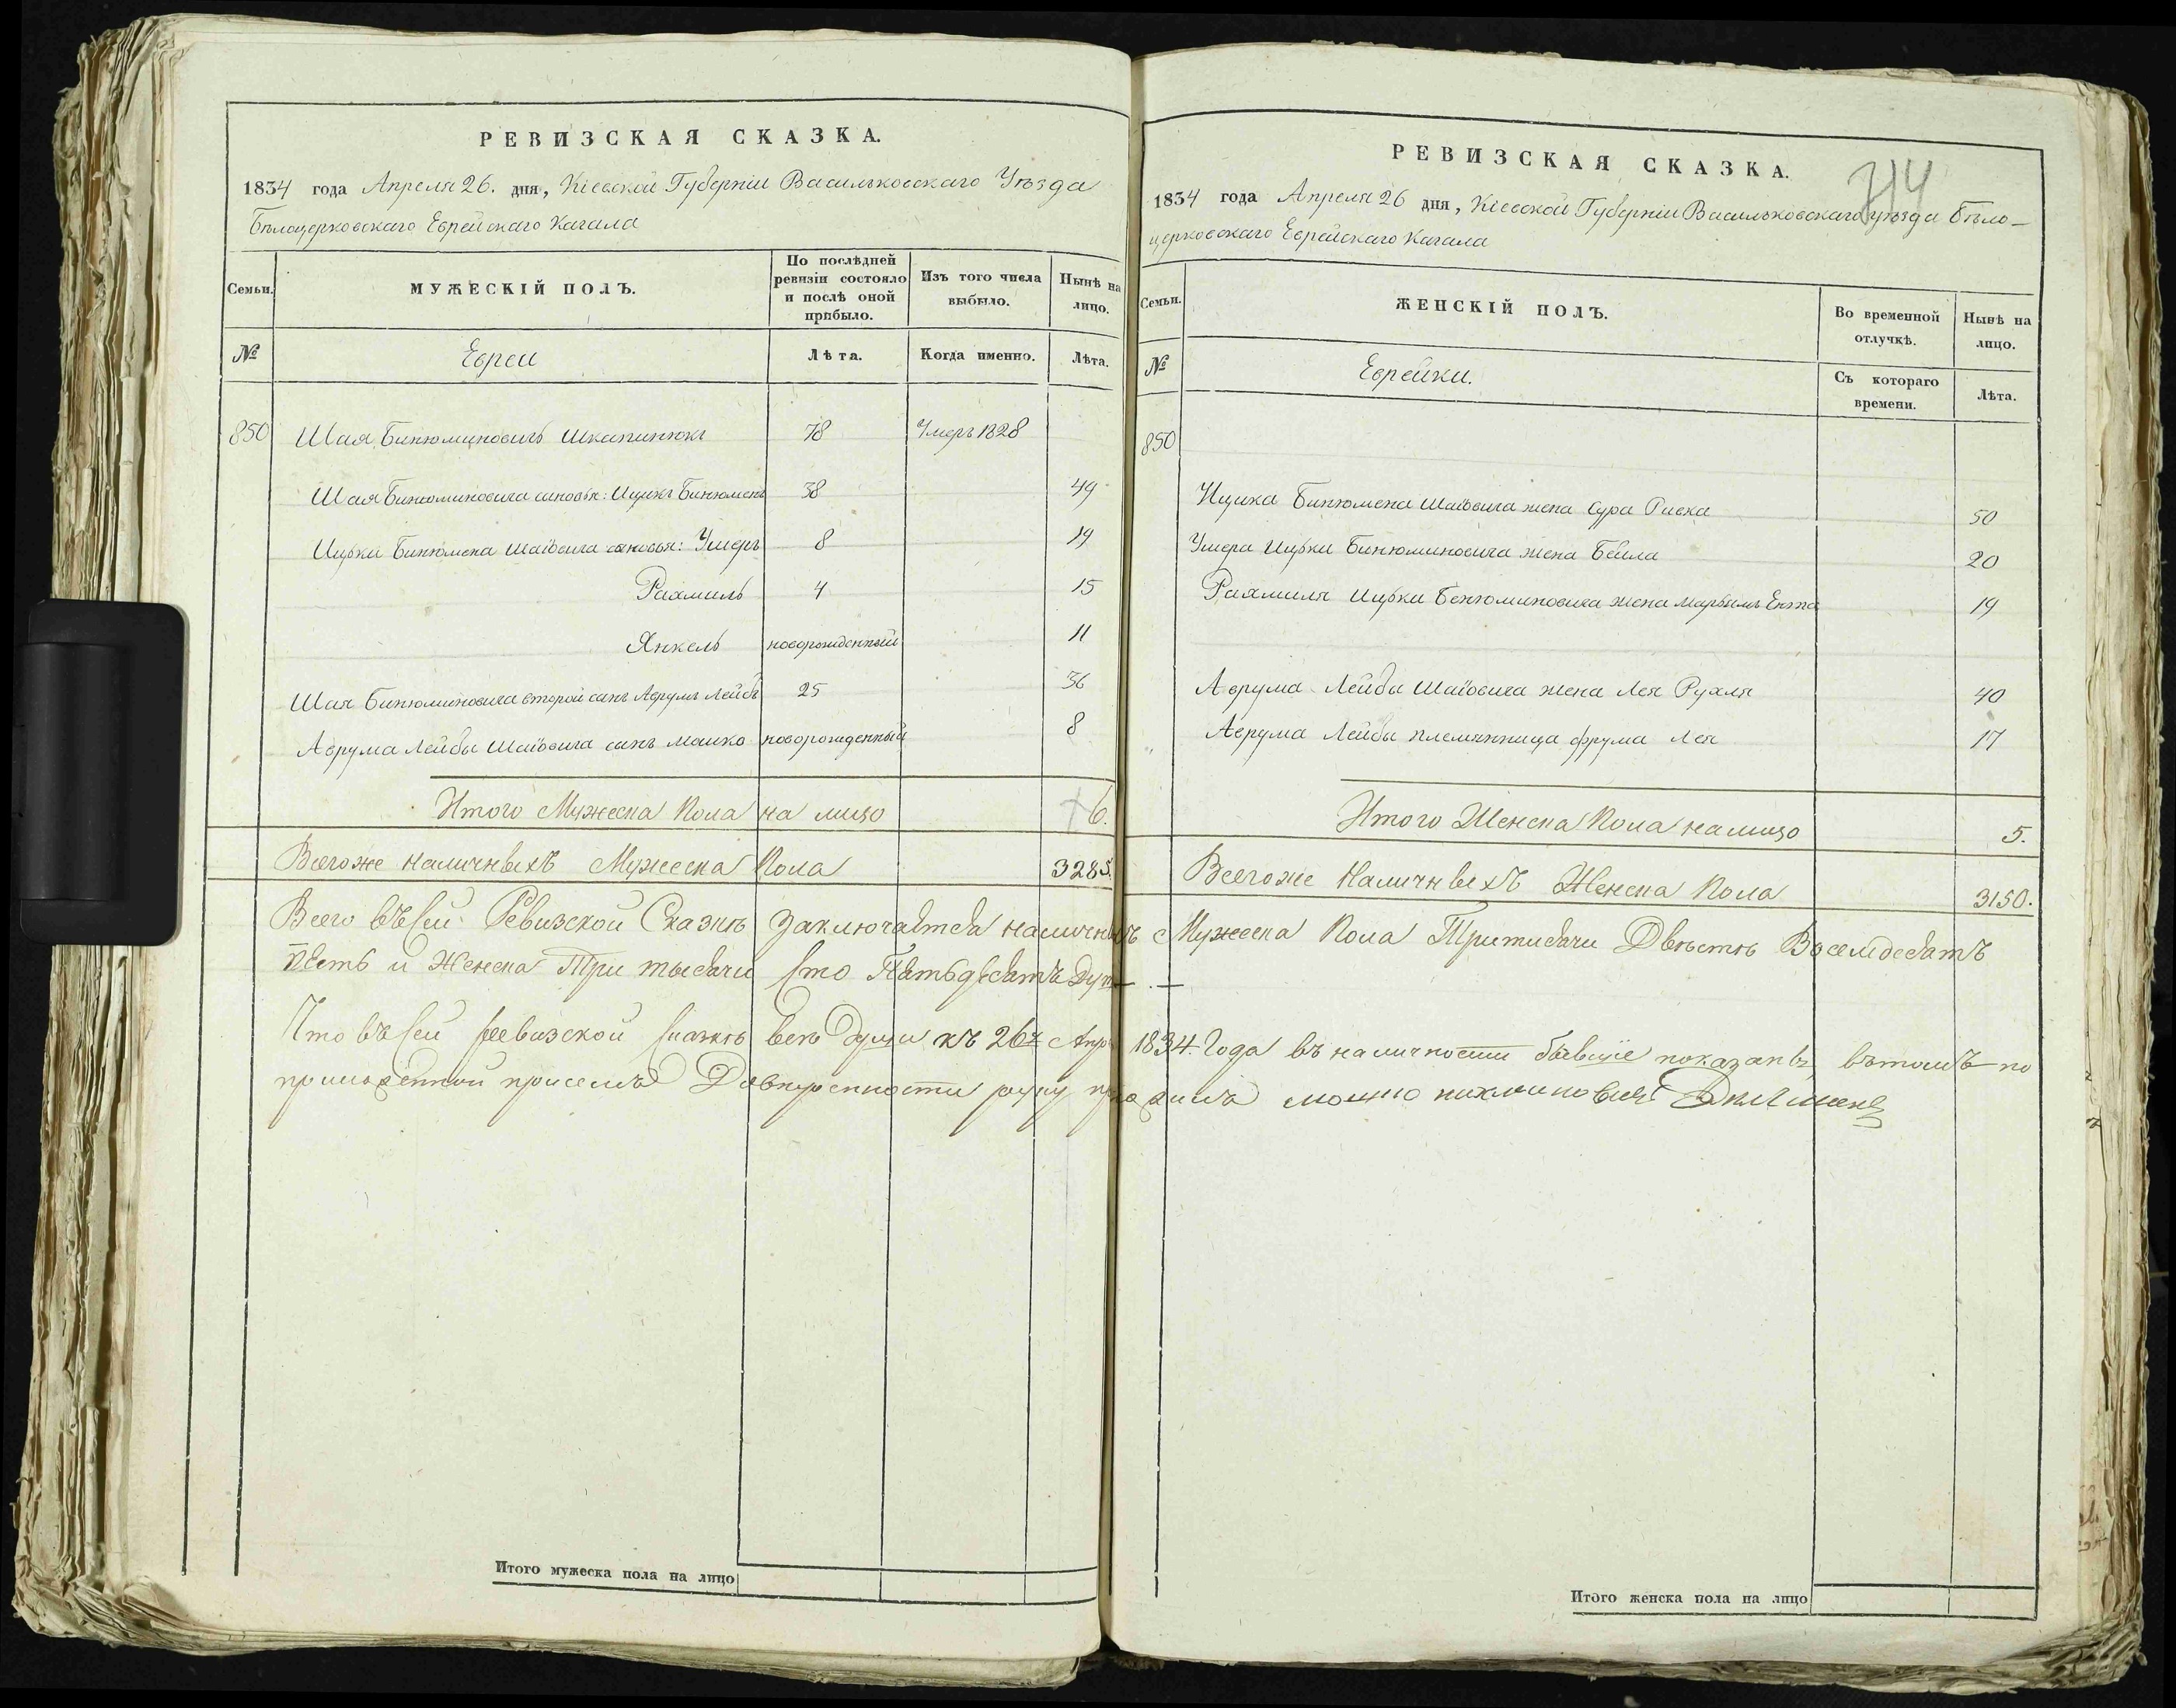 РЕВИЗСКАЯ СКАЗКА.
1834 года Апреля 26. дня, Кіевской Губерніи Васильковскаго Уѣзда
Бѣлоцерковскаго Еврейскаго Кагала
Семьи.
МУЖЕСКІЙ ПОЛЪ.
По послѣдней ревизіи состояло и послѣ оной прибыло.
Изъ того числа выбыло.
Нынѣ на лицо.
№
Евреи
Лѣта.
Когда именно.
Лѣта.
850 Шая Бинюминовичъ Шкапинюкъ 78 Умеръ 1828
Шая Бинюминовича сыновья: Ицикъ Бинюменъ 38 49
Ицьки Бинюмена Шаіовича сыновья: Умеръ 8 19
Рахмиль 4 15
Янкель новорожденный 11
Шая Бинюминовича второй сынъ Аврумъ Лейбъ 25 36
Аврума Лейбы Шаіовича сынъ Мошко новорожденный 8
Итого Мужеска Пола на лицо 6.
Всегоже наличныхъ Мужеска Пола 3285.
РЕВИЗСКАЯ СКАЗКА.
714
1834 года Апреля 26 дня, Кіевской Губерніи Васильковскаго уѣзда Бѣло-
церковскаго Еврейскаго Кагала
Семьи.
ЖЕНСКІЙ ПОЛЪ.
Во временной отлучкѣ.
Нынѣ на лицо.
№
Еврейки.
Съ котораго времени.
Лѣта.
850
Ицика Бинюмена Шаіовича жена Сура Ривка 50
Умера Ицьки Бинюминовича жена Бейла 20
Рахмиля Ицьки Бенюминовича жена Марьямъ Ента 19
Аврума Лейбы Шаіовича жена Лея Рухля 40
Аврума Лейбы племянница Фрума Лея 17
Итого Женска Пола налицо 5.
Всегоже Наличныхъ Женска Пола 3150.
Всего въ сей Ревизской Сказкѣ заключается наличныхъ Мужеска Пола Тритисячи Двѣстѣ Восемдесятъ
Пять и Женска Три тысячи сто Пятьдесятъ Душ
Что въ сей ревизской сказкѣ всѣ души къ 26ч Апр. 1834. Года въ наличности бывшіе показаны, вътомъ по
приложенной присемъ Довѣренности руку приложилъ Мошко
Итого мужеска пола на лицо
Итого женска пола на лицо